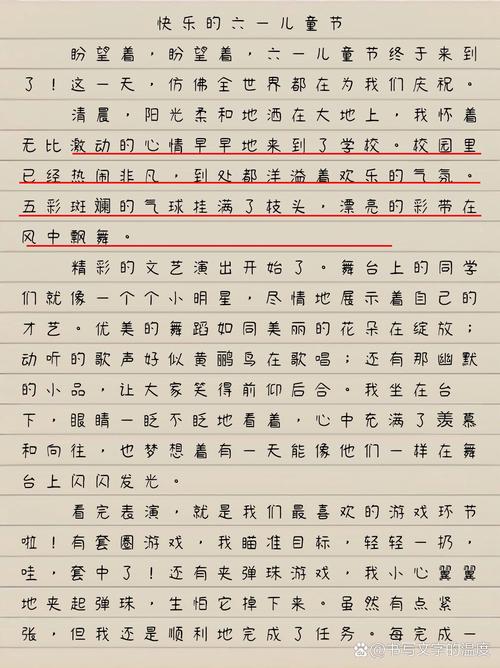 快乐的六一儿童节
盼望着，盼望着，六一儿童节终于来到
了！这一天，仿佛全世界都在为我们庆祝。
清晨，阳光柔和地洒在大地上，我怀着
无比激动的心情早早地来到了学校。校园里
已经热闹非凡，到处都洋溢着欢乐的气氛。
五彩斑斓的气球挂满了枝头，漂亮的彩带在
风中飘舞。
精彩的文艺演出开始了。舞台上的同学
们就像一个个小明星，尽情地展示着自己的
才艺。优美的舞蹈如同美丽的花朵在绽放；
动听的歌声好似黄鹂鸟在歌唱；还有那幽默
的小品，让大家笑得前仰后合。我坐在台
下，眼睛一眨不眨地看着，心中充满了羡慕
和向往，也梦想着有一天能像他们一样在舞
台上闪闪发光。
看完表演，就是我们最喜欢的游戏环节
啦！有套圈游戏，我瞄准目标，轻轻一扔，
哇，套中了！还有夹弹珠游戏，我小心翼翼
地夹起弹珠，生怕它掉下来。虽然有点紧
张，但我还是顺利地完成了任务。每完成一
书写文字的温度